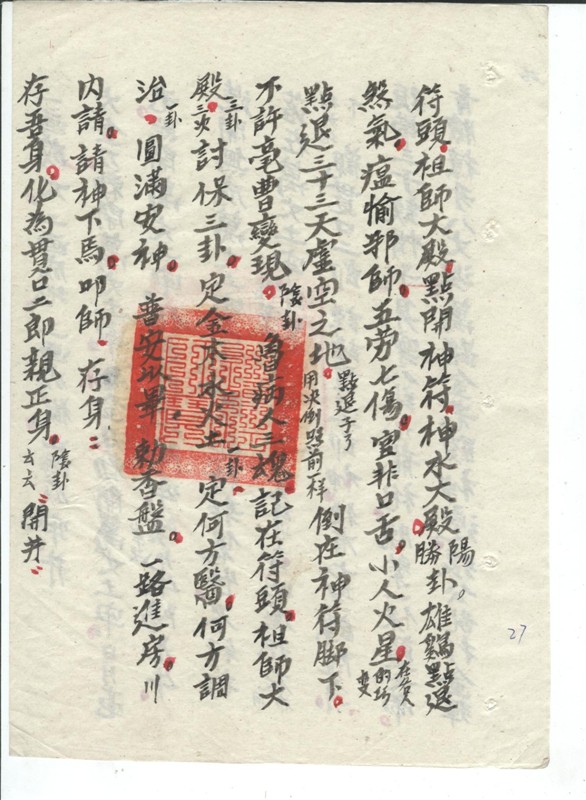 符頭。祖師大殿。點開神符。神水大殿。陽勝卦。雄鷄點退
煞氣。瘟㾔邪師。五劳七傷。官非口舌。小人火星。
點退三十三天虛空之地。點退于了 用决倒照前样 倒在神符脚下。
不許毫曹變現。陰卦 病人三魂記在符頭。祖師大
殿。三卦 三次討保三卦。定金木水火土 一卦 定何方醫。何方調
治。一卦 圓滿安神。普安以畢 勅香盤。一路進房。川
內請。請神下馬。叩師。存身:
存吾身。化為貫口二郎親正身。陰卦 云云 開井:
27